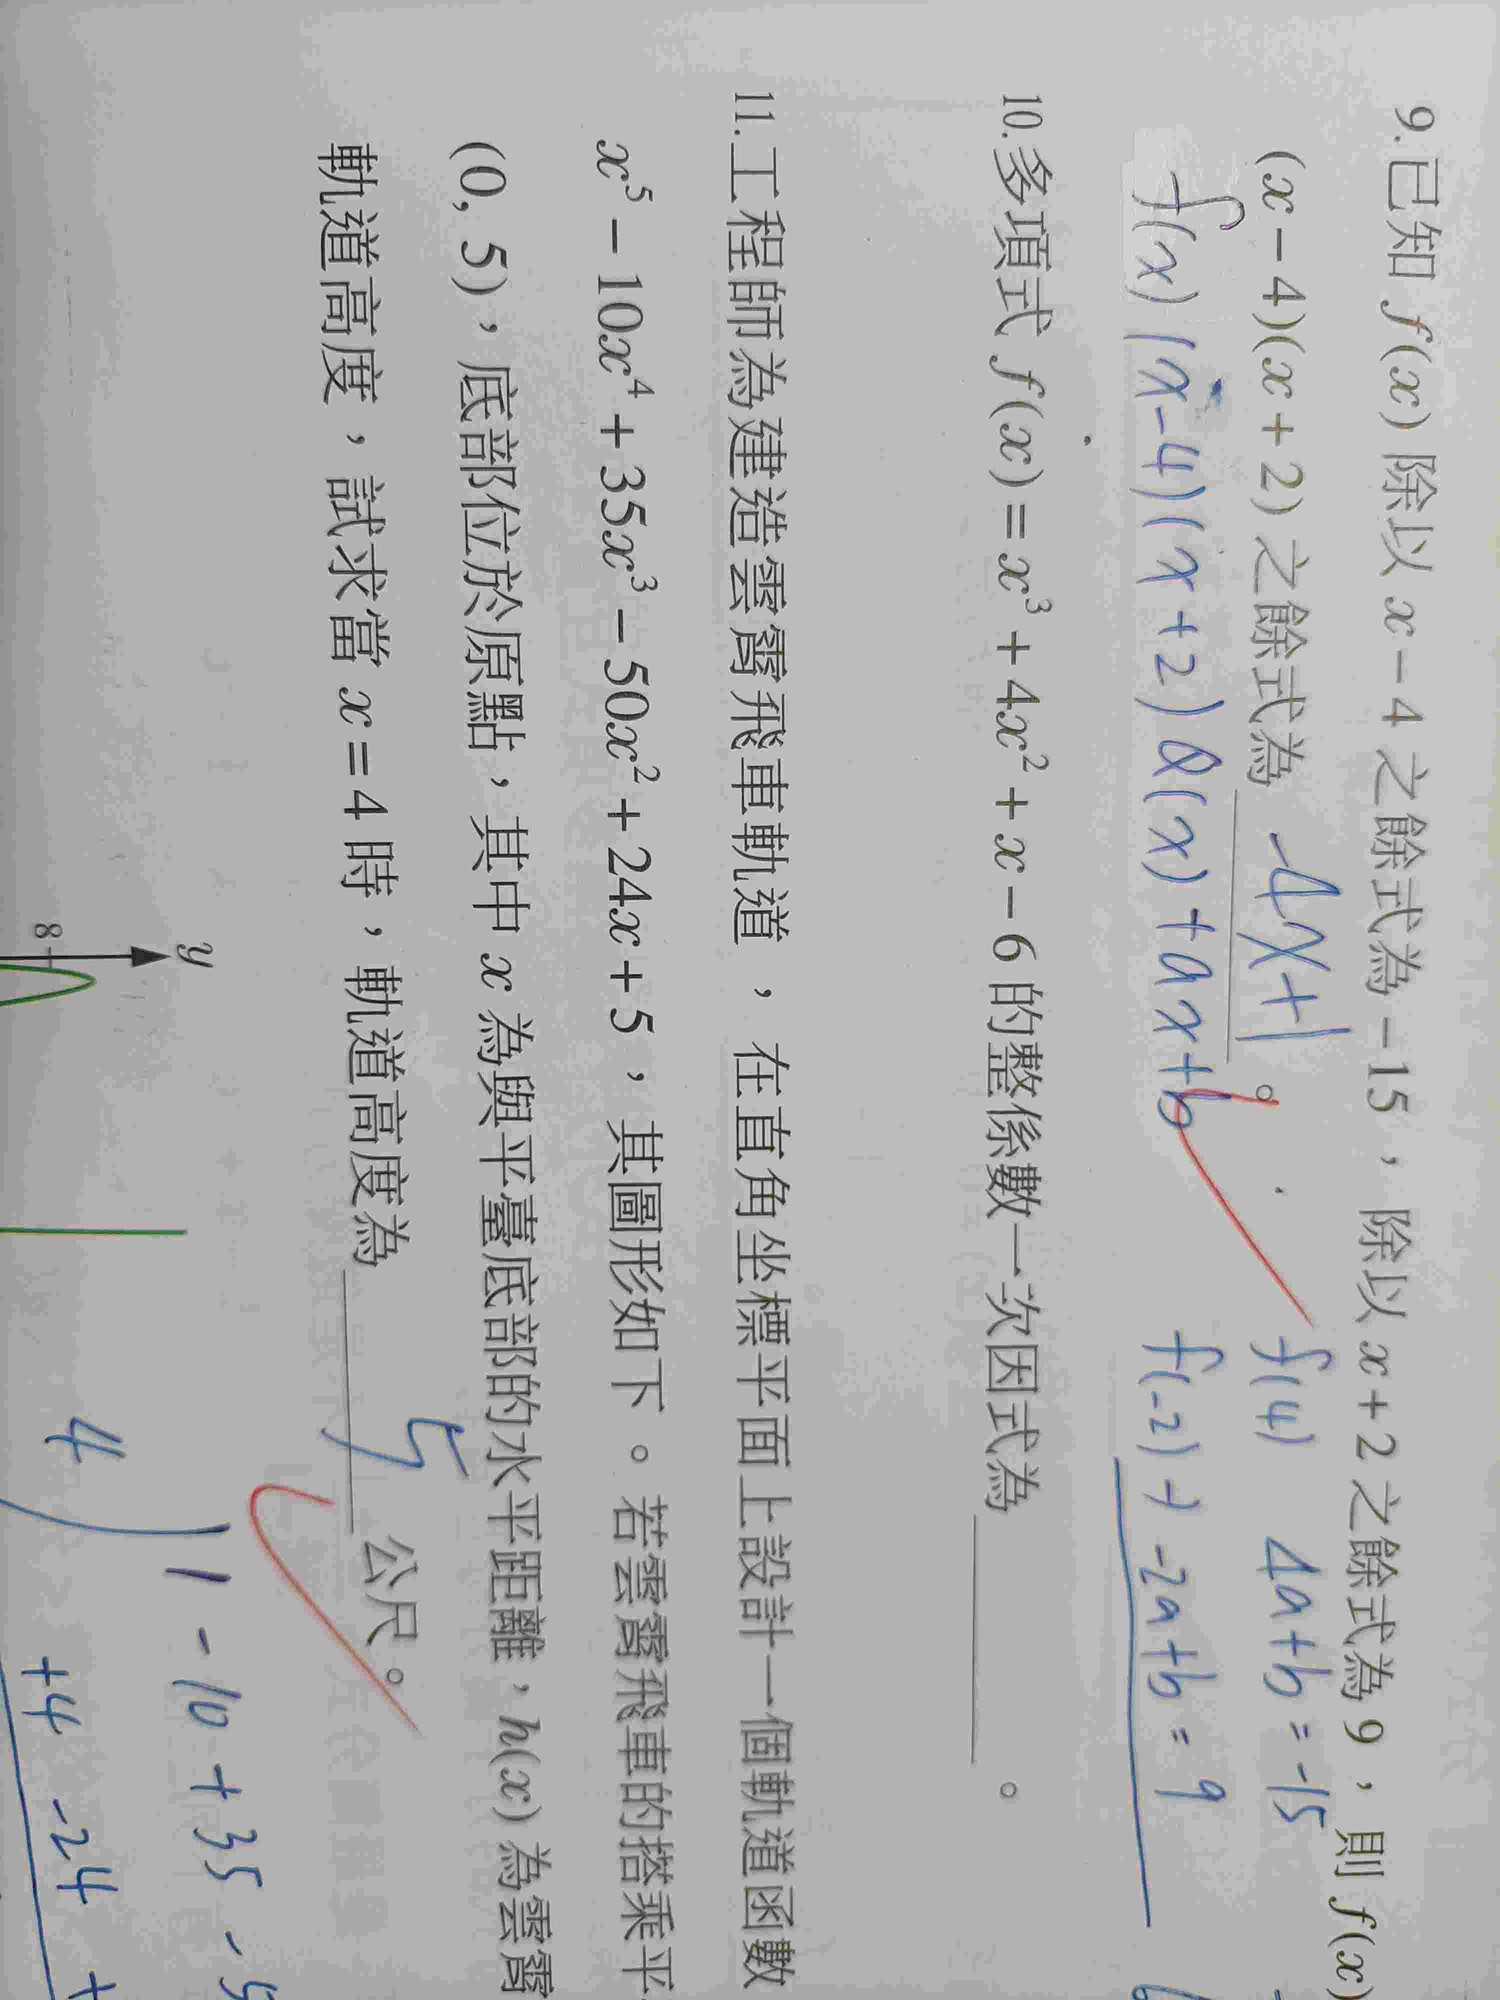 9.已知 f(x) 除以 x－4 之餘式為 －15，除以 x＋2 之餘式為 9，則 f(x)
(x－4)(x＋2) 之餘式為 -4x+1 。
f(x) (x-4)(x+2)Q(x)+ax+b
f(4) 4a+b=-15
f(-2) -2a+b=9
10.多項式 f(x)＝x³＋4x²＋x－6 的整係數一次因式為 。
11.工程師為建造雲霄飛車軌道，在直角坐標平面上設計一個軌道函數
x⁵－10x⁴＋35x³－50x²＋24x＋5，其圖形如下。若雲霄飛車的搭乘平
(0, 5)，底部位於原點，其中 x 為與平臺底部的水平距離，h(x) 為雲霄
軌道高度，試求當 x＝4 時，軌道高度為 5 公尺。
y
8
4 1 -10 +35 -5
+4 -24 +